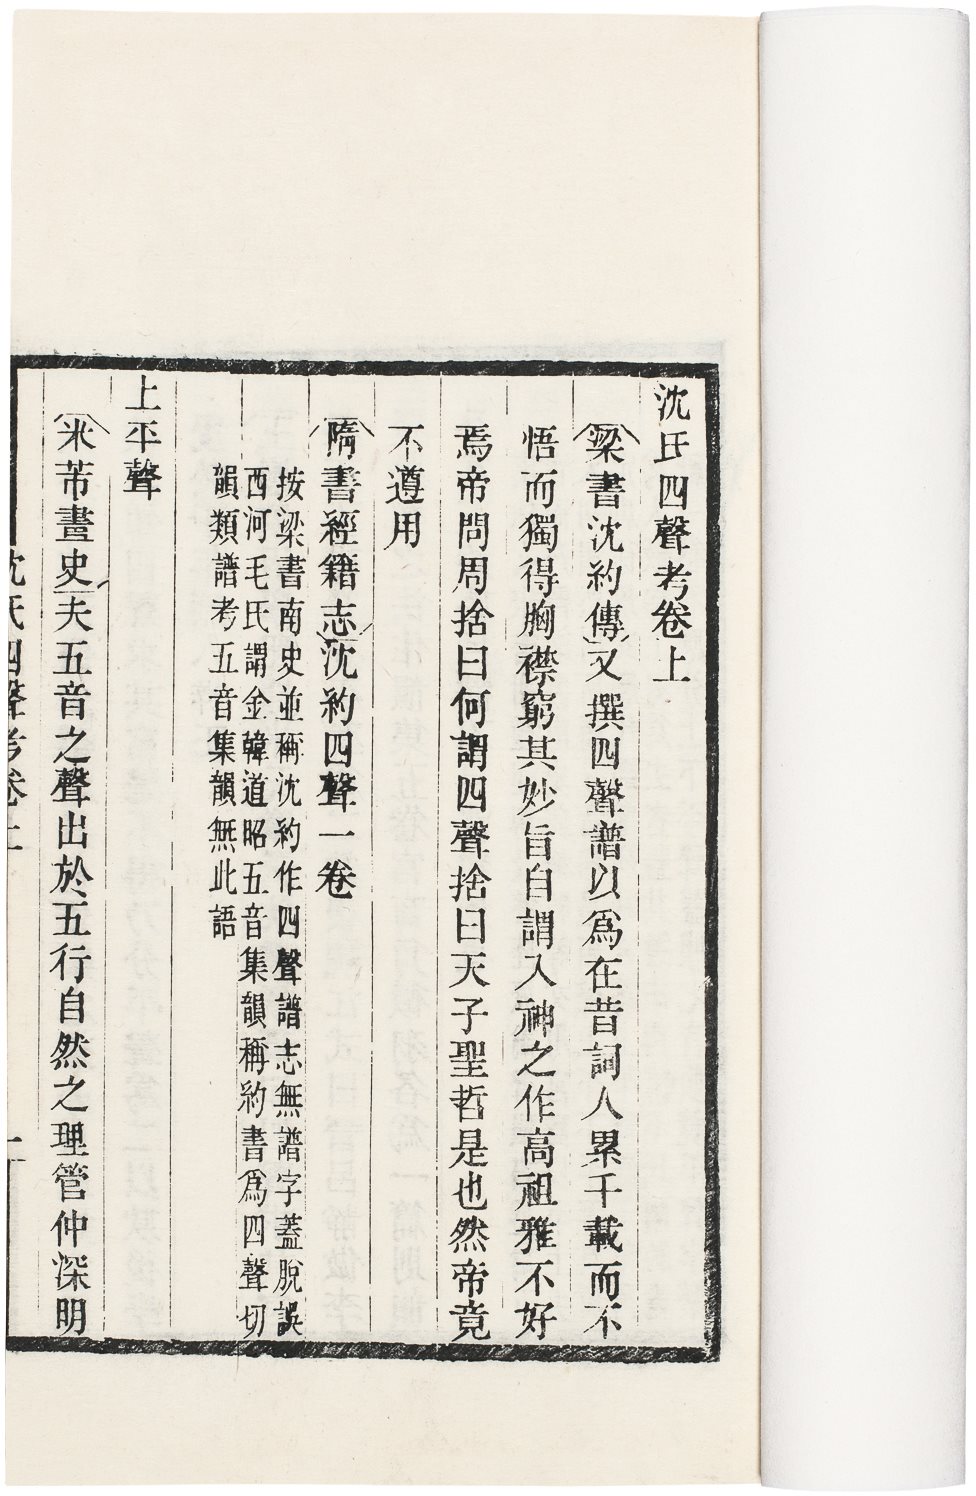 沈氏四聲考卷上
梁書沈約傳又撰四聲譜以爲在昔詞人累千載而不
悟而獨得胸襟窮其妙旨自謂入神之作高祖雅不好
焉帝問周捨曰何謂四聲捨曰天子聖哲是也然帝竟
不遵用
隋書經籍志沈約四聲一卷
按梁書南史並稱沈約作四聲譜志無譜字蓋脫誤
西河毛氏謂金韓道昭五音集韻稱約書爲四聲切
韻類譜考五音集韻無此語
上平聲
米芾畫史夫五音之聲出於五行自然之理管仲深明
沈氏四聲考卷上